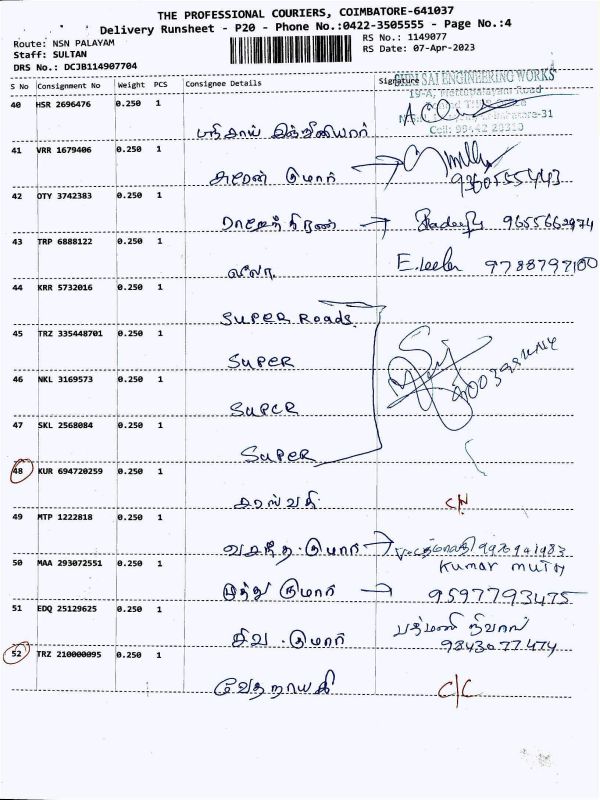 THE PROFESSIONAL COURIERS, COIMBATORE-641037
Delivery Runsheet - P20 - Phone No.:0422-3505555 - Page No.:4
Route: NSN PALAYAM
RS No.: 1149077
Staff: SULTAN
RS Date: 07-Apr-2023
DRS No.: DCJB114907704
S No Consignment No Weight PCS Consignee Details Signature
SHRI SAI ENGINEERING WORKS
19-A, Mettupalayam Road
40 HSR 2696476 0.250 1
41 VRR 1679406 0.250 1
குமார்
42 OTY 3742383 0.250 1
9655662974
43 TRP 6888122 0.250 1
லீலா E. Leela 9788797100
44 KRR 5732016 0.250 1
SUPER Roads
45 TRZ 335448701 0.250 1
SUPER
46 NKL 3169573 0.250 1
SUPER
47 SKL 2568084 0.250 1
SUPER
48 KUR 694720259 0.250 1
சரஸ்வதி
49 MTP 1222818 0.250 1
வசந்த குமார்
50 MAA 293072551 0.250 1
Kumar
முத்து குமார் 9597793475
51 EDQ 25129625 0.250 1
பத்மணி நிவாஸ்
சிவ குமார் 9843077474
52 TRZ 210000095 0.250 1
வேதநாயகி C/C